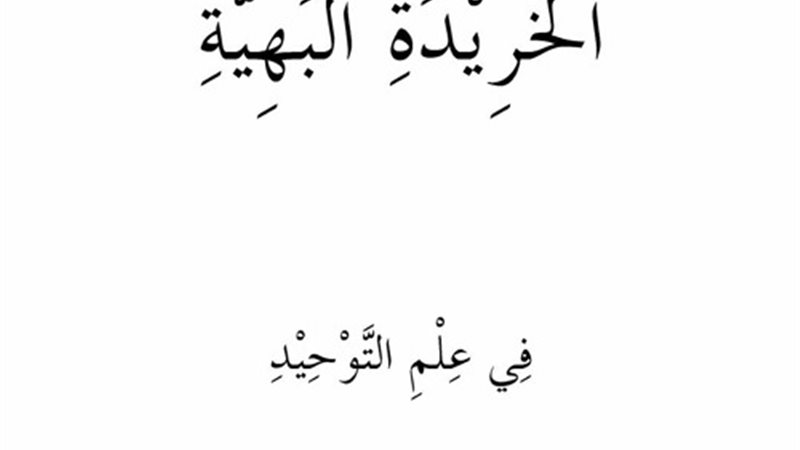 الخَرِيْدَةِ البَهِيَّةِ
فِي عِلْمِ التَّوْحِيْدِ